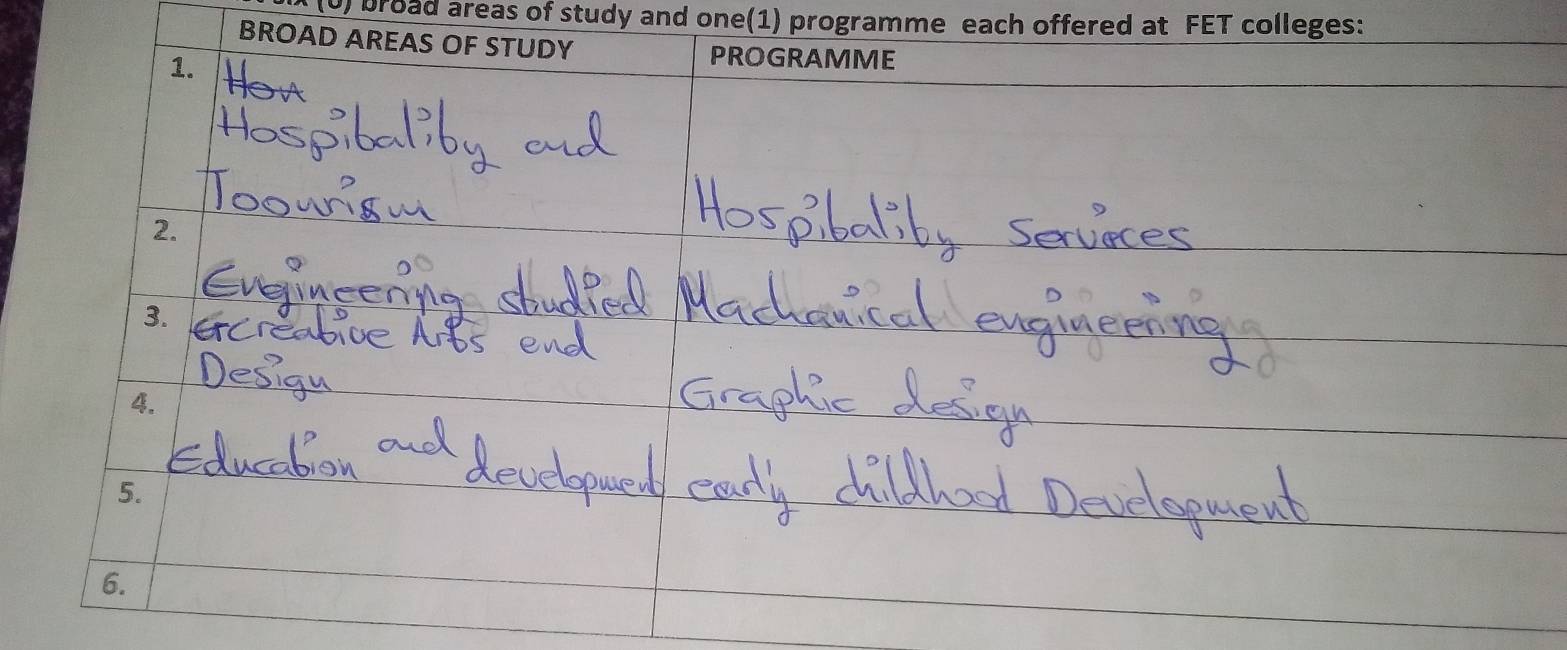 (6) broad areas of study and one(1) programme each offered at FET colleges:
BROAD AREAS OF STUDY PROGRAMME
1. Hon
Hospitality and
Toourism Hospitality Serveces
2.
Engineering studied Machanical engineering
3. Creative Arts end
Design Graphic design
4.
Education and development early childhood Development
5.
6.